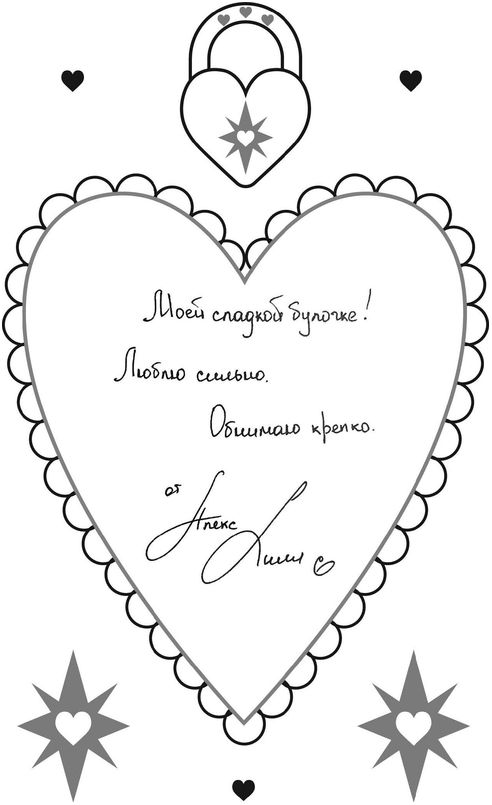 Моей сладкой булочке!
Люблю сильно.
Обнимаю крепко.
от
Алекс Хилл